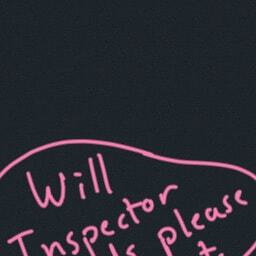 Will
Inspector
please